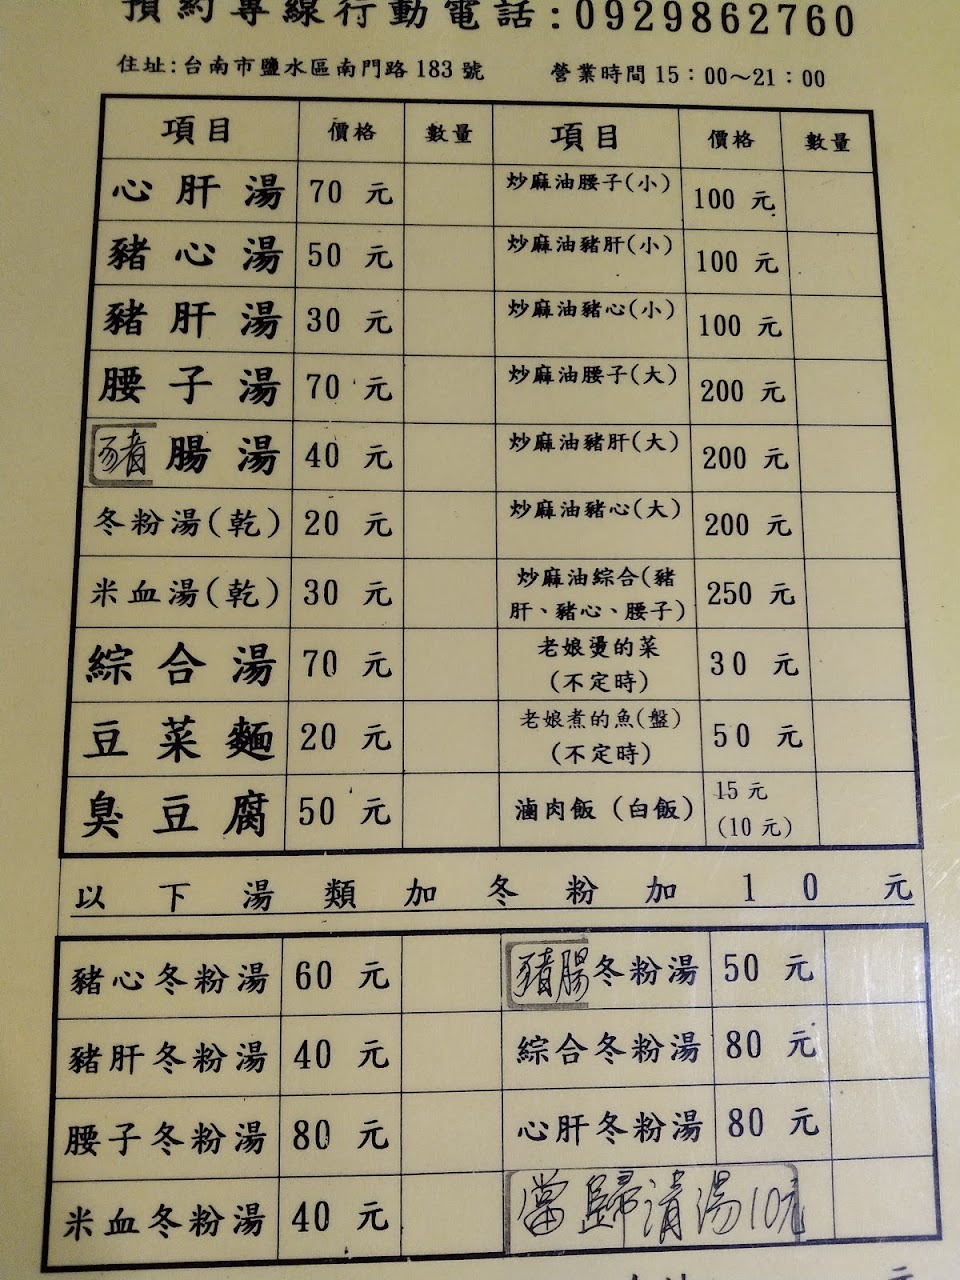 預約專線行動電話:0929862760
住址:台南市鹽水區南門路183號 營業時間15:00~21:00
項目 價格 數量 項目 價格 數量
心肝湯 70 元 炒麻油腰子(小) 100 元
豬心湯 50 元 炒麻油豬肝(小) 100 元
豬肝湯 30 元 炒麻油豬心(小) 100 元
腰子湯 70 元 炒麻油腰子(大) 200 元
豬腸湯 40 元 炒麻油豬肝(大) 200 元
冬粉湯(乾) 20 元 炒麻油豬心(大) 200 元
米血湯(乾) 30 元 炒麻油綜合(豬肝、豬心、腰子) 250 元
綜合湯 70 元 老娘燙的菜(不定時) 30 元
豆菜麵 20 元 老娘煮的魚(盤)(不定時) 50 元
臭豆腐 50 元 滷肉飯 (白飯) 15 元 (10 元)
以下湯類加冬粉加10元
豬心冬粉湯 60 元 豬腸冬粉湯 50 元
豬肝冬粉湯 40 元 綜合冬粉湯 80 元
腰子冬粉湯 80 元 心肝冬粉湯 80 元
米血冬粉湯 40 元 當歸清湯10元